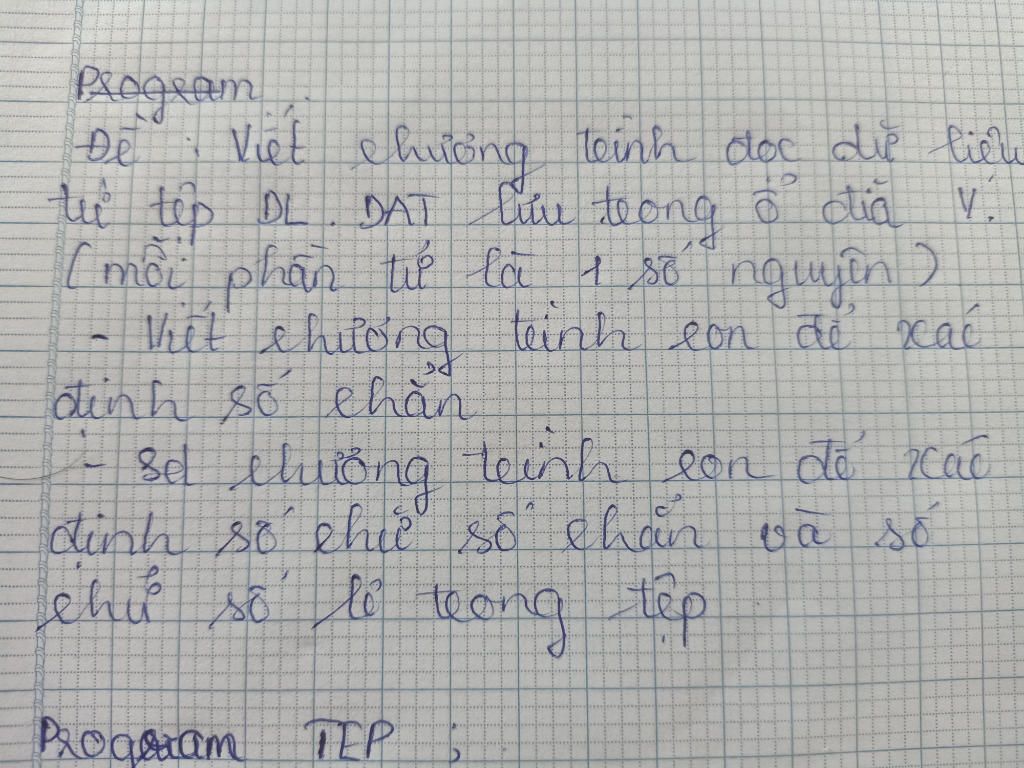 Program
Đề : Viết chương trình đọc dữ liệu
từ tệp DL.DAT lưu trong ổ đĩa V.
(mỗi phần tử là 1 số nguyên)
- Viết chương trình con để xác
định số chẵn
- sd chương trình con để xác
định số chữ số chẵn và số
chữ số lẻ trong tệp
Program TEP ;